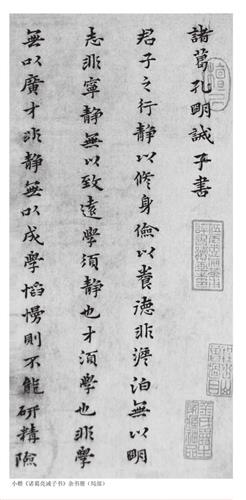 諸葛孔明誡子書
君子之行静以修身儉以養德非澹泊無以明
志非寧静無以致遠學須静也才須學也非學
無以廣才非静無以成學慆慢則不能研精險
小楷《诸葛亮诫子书》余书册（局部）